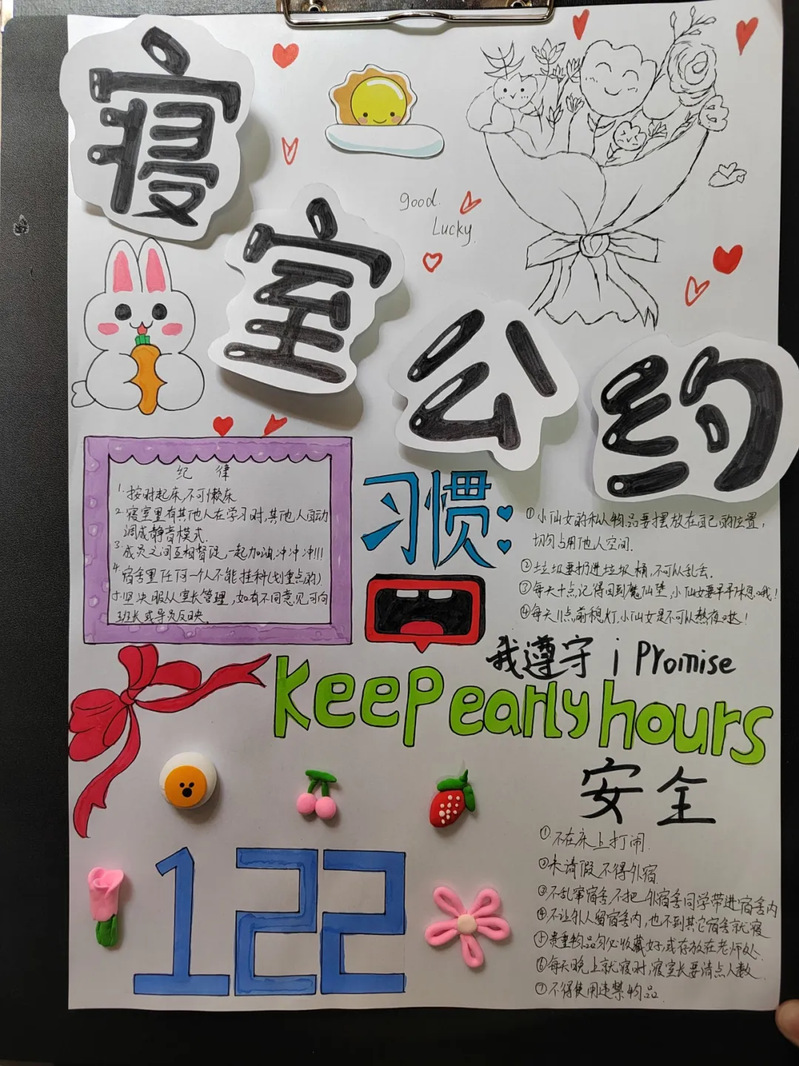 寝室公约
good.
Lucky.
纪律
1.按时起床,不可懒床
2.寝室里有其他人在学习时,其他人自动
调成静音模式.
3.成员之间互相督促,一起加油冲冲冲!!!
4.宿舍里任何一个人不能挂种(划重点的)
5.坚决服从室长管理,如有不同意见可向
班长或导员反映.
习惯
①小仙女的私人物品要摆放在自己的位置,
切勿占用他人空间.
②垃圾要扔进垃圾桶,不可从乱丢.
③每天十点记得回到魔仙堡,小仙女要早早休息哦!
④每天11点前熄灯,小仙女是不可以熬夜哒!
我遵守 i Promise
Keep early hours
安全
①不在床上打闹
②未请假不得外宿
③不乱窜宿舍,不把外宿舍同学带进宿舍内
④不让外人留宿舍内,也不到其它宿舍就寝
⑤贵重物品务必收藏好,或存放在老师处.
⑥每天晚上就寝时,寝室长要清点人数
⑦不得使用违禁物品
122